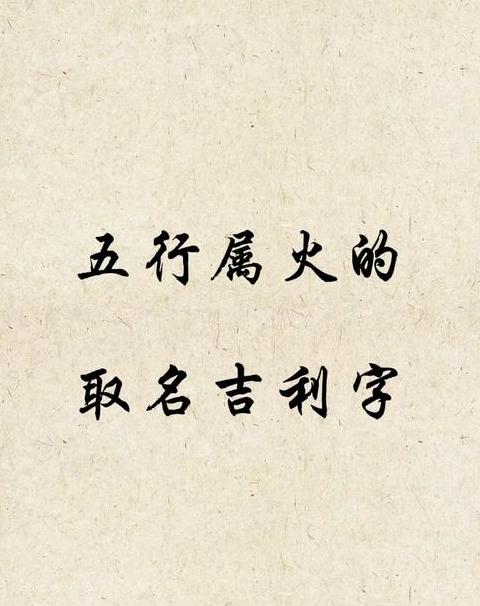 五行属火的
取名吉利字